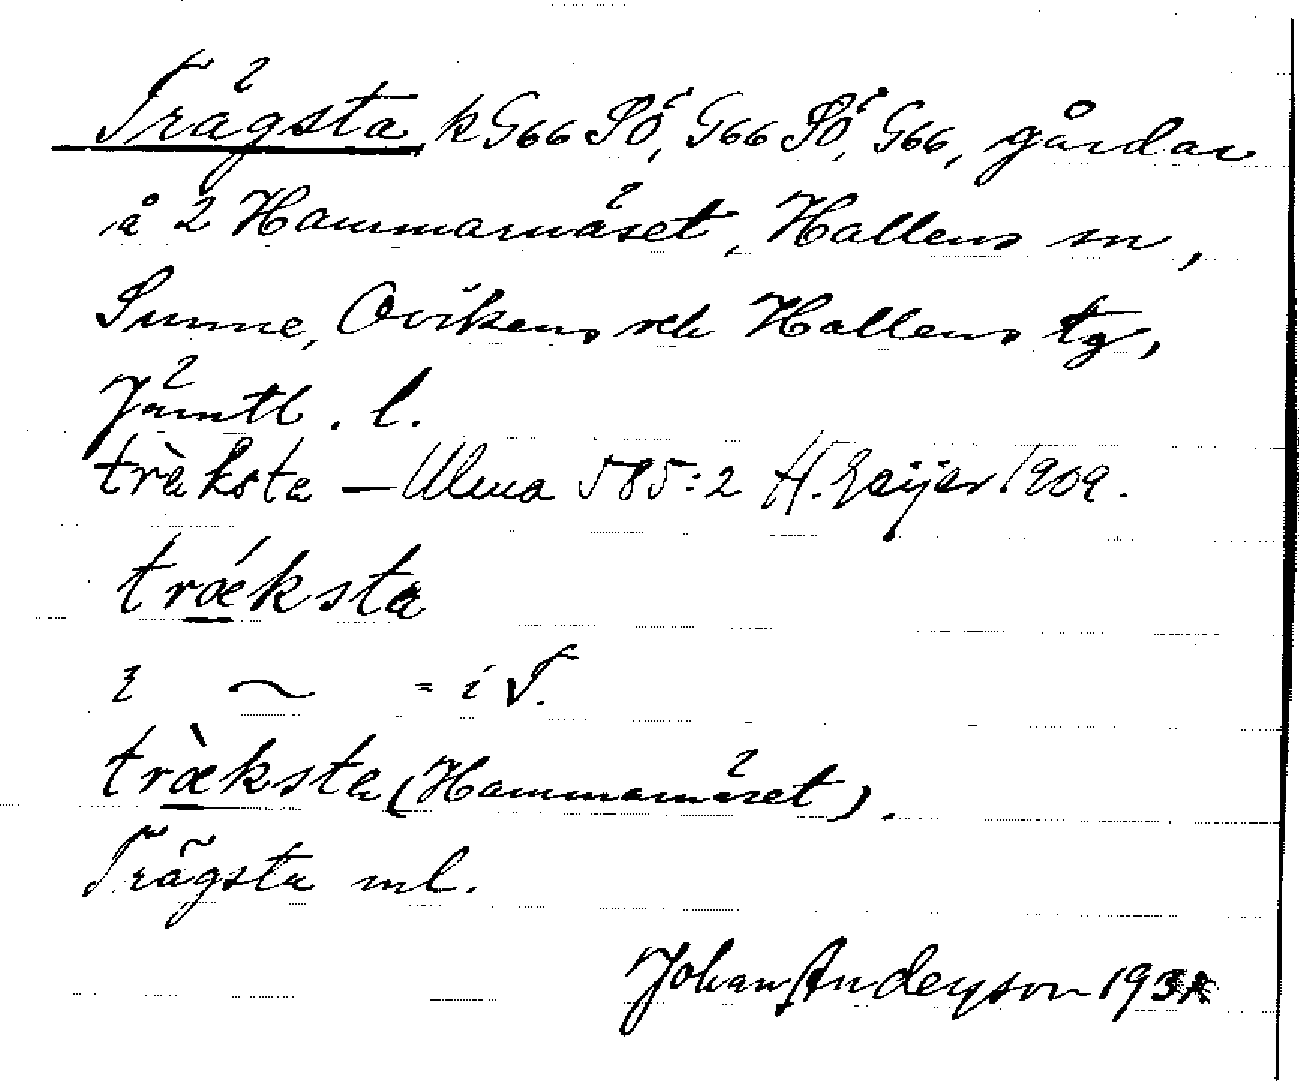 Trägsta k G66 SÖ, G66 SÖ, G66, gårdar
å 2 Hammarnäset, Hallens sn,
Sunne, Ovikens och Hallens tg,
Jämtl. l.
trä̀ksta – Ulma 585:2 H. Geijer 1909.
trǽksta
i ~ = i T.
træ̀ksta (Hammarnäset).
Trägsta ml.
Johan Anderson